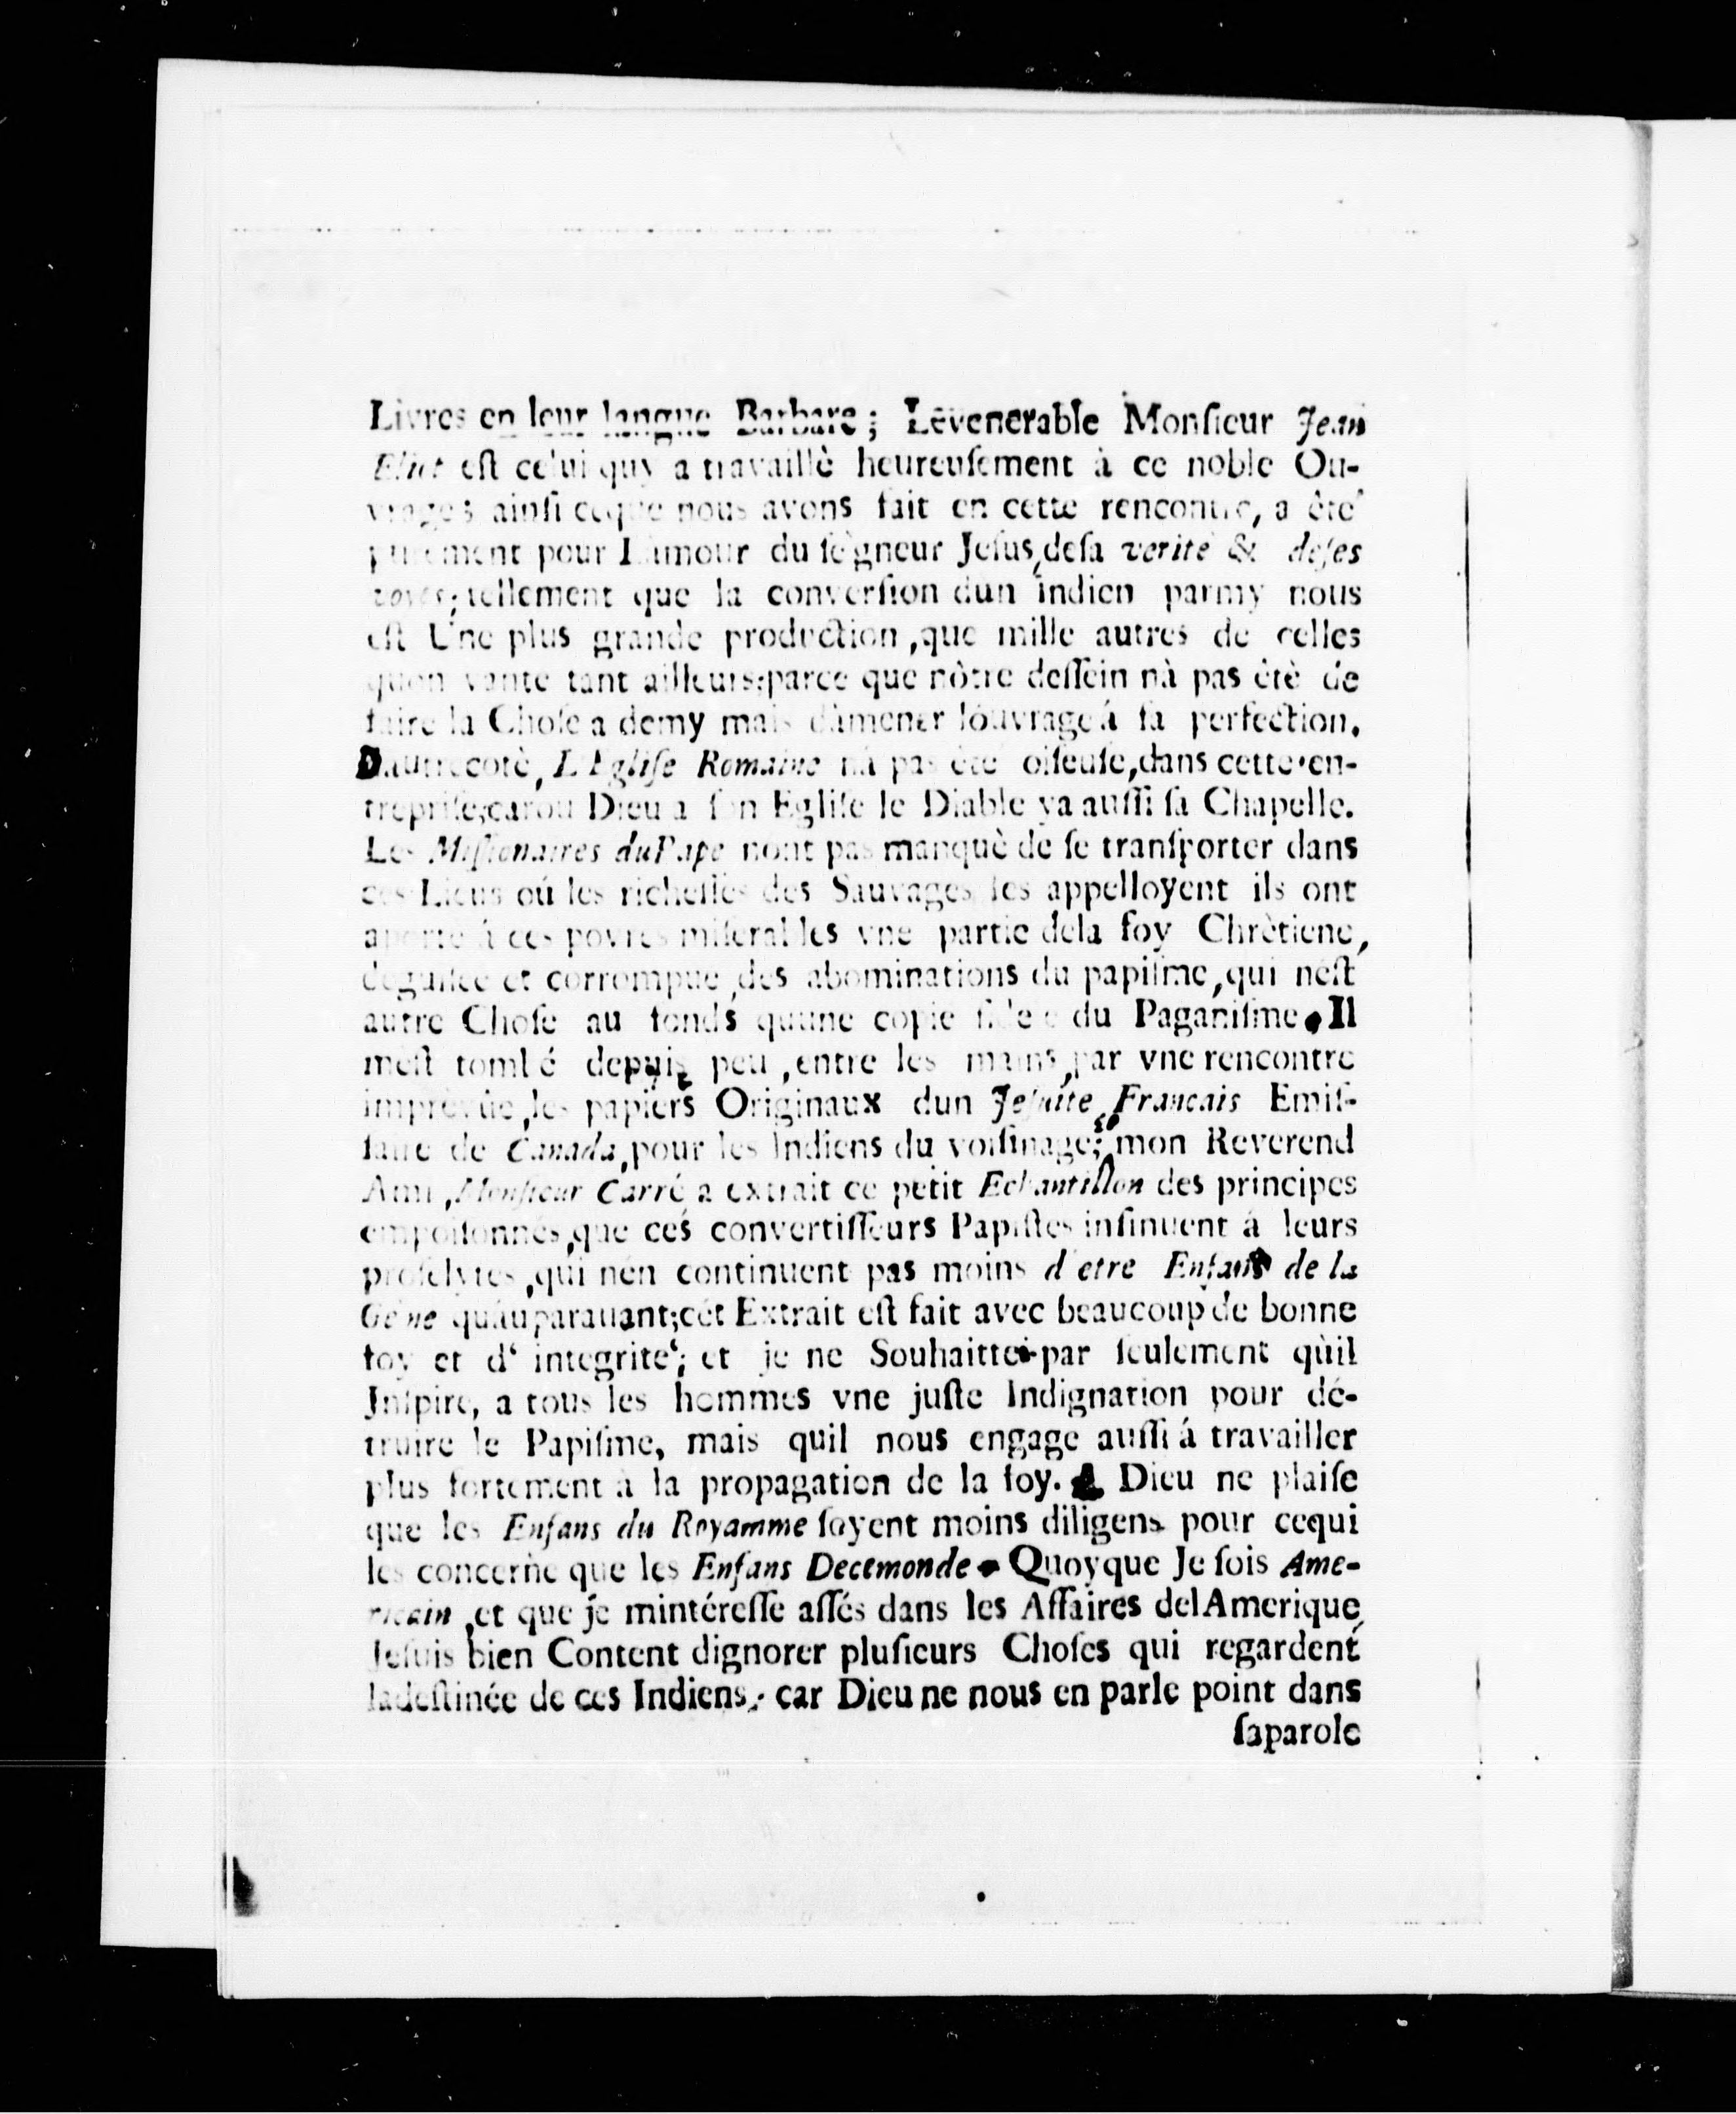 Livres en leur langue Barbare; Levenerable Monſieur Jean
Eliot eſt celui quy a travaillè heureuſement à ce noble Ou-
vrages ainſi ceque nous avons fait en cette rencontre, a ête
purement pour Lamour du ſègneur Jeſus,deſa verite & deſes
voyes;tellement que la converſion dun indien parmy nous
eſt Une plus grande production ,que mille autres de celles
quon vante tant ailleurs;parce que nôtre deſſein nà pas ètè de
faire la Choſe a demy mais dàmener lòuvrage á ſa perfection.
Dautrecotè, L'Egliſe Romaine nà pas ete oiſeuſe,dans cette en-
trepriſe;carou Dieu a ſon Egliſe le Diable ya auſſi ſa Chapelle.
Les Miſſionaires duPape nont pas manquè de ſe tranſporter dans
ces Lieus oú les richeſſes des Sauvages les appelloyent ils ont
aporte á ces povres miſerables vne partie dela foy Chrètiene,
deguiſee et corrompue ,des abominations du papiſme,qui neſt
autre Choſe au fonds quune copie fidele du Paganiſme. Il
meſt tombé depuis peu ,entre les mains ,par vne rencontre
imprevüe ,les papiers Originaux dun Jeſuite Francais Emiſ-
ſaire de Canada,pour les Indiens du voiſinage; mon Reverend
Ami ,Monſieur Carré a extrait ce petit Echantillon des principes
empoiſonnés,que ces convertiſſeurs Papiſtes inſinuent á leurs
proſelytes ,qui nén continuent pas moins d'etre Enfans de la
Gène quàuparauant;cét Extrait eſt fait avec beaucoup de bonne
foy et d' integrite'; et je ne Souhaitte par ſeulement qùil
Jnſpire, a tous les hommes vne juſte Indignation pour dé-
truire le Papiſme, mais quil nous engage auſſi á travailler
plus fortement à la propagation de la foy. A Dieu ne plaiſe
que les Enfans du Royamme ſoyent moins diligens pour cequi
les concerne que les Enfans Decemonde. Quoyque Je ſois Ame-
ricain ,et que je mintéreſſe aſſés dans les Affaires delAmerique,
Jeſuis bien Content dignorer pluſieurs Choſes qui regardent
ladeſtinée de ces Indiens; car Dieu ne nous en parle point dans
ſaparole